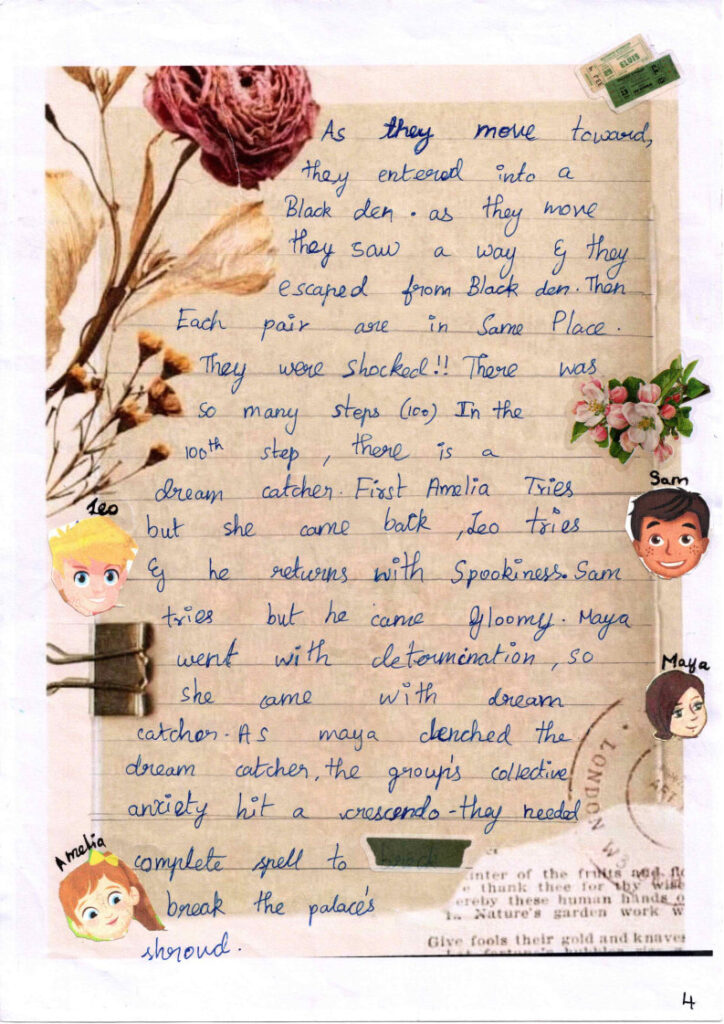 ELVIS
As they move toward,
they entered into a
Black den. as they move
they saw a way & they
escaped from Black den. Then
Each pair are in Same Place.
They were shocked!! There was
so many steps (100) In the
100th step, there is a
dream catcher. First Amelia Tries
but she came back, Leo tries
& he returns with Spookiness. Sam
tries but he came gloomy. Maya
went with determination, so
she came with dream
catcher. As maya clenched the
dream catcher, the group's collective
anxiety hit a crescendo - they needed
complete spell to
break the palace's
shroud.
Leo
Sam
Maya
Amelia
LONDON W3
inter of the fruits and
e thank thee for thy wise
ereby these human hands
in Nature's garden work w
Give fools their gold and knaves
4